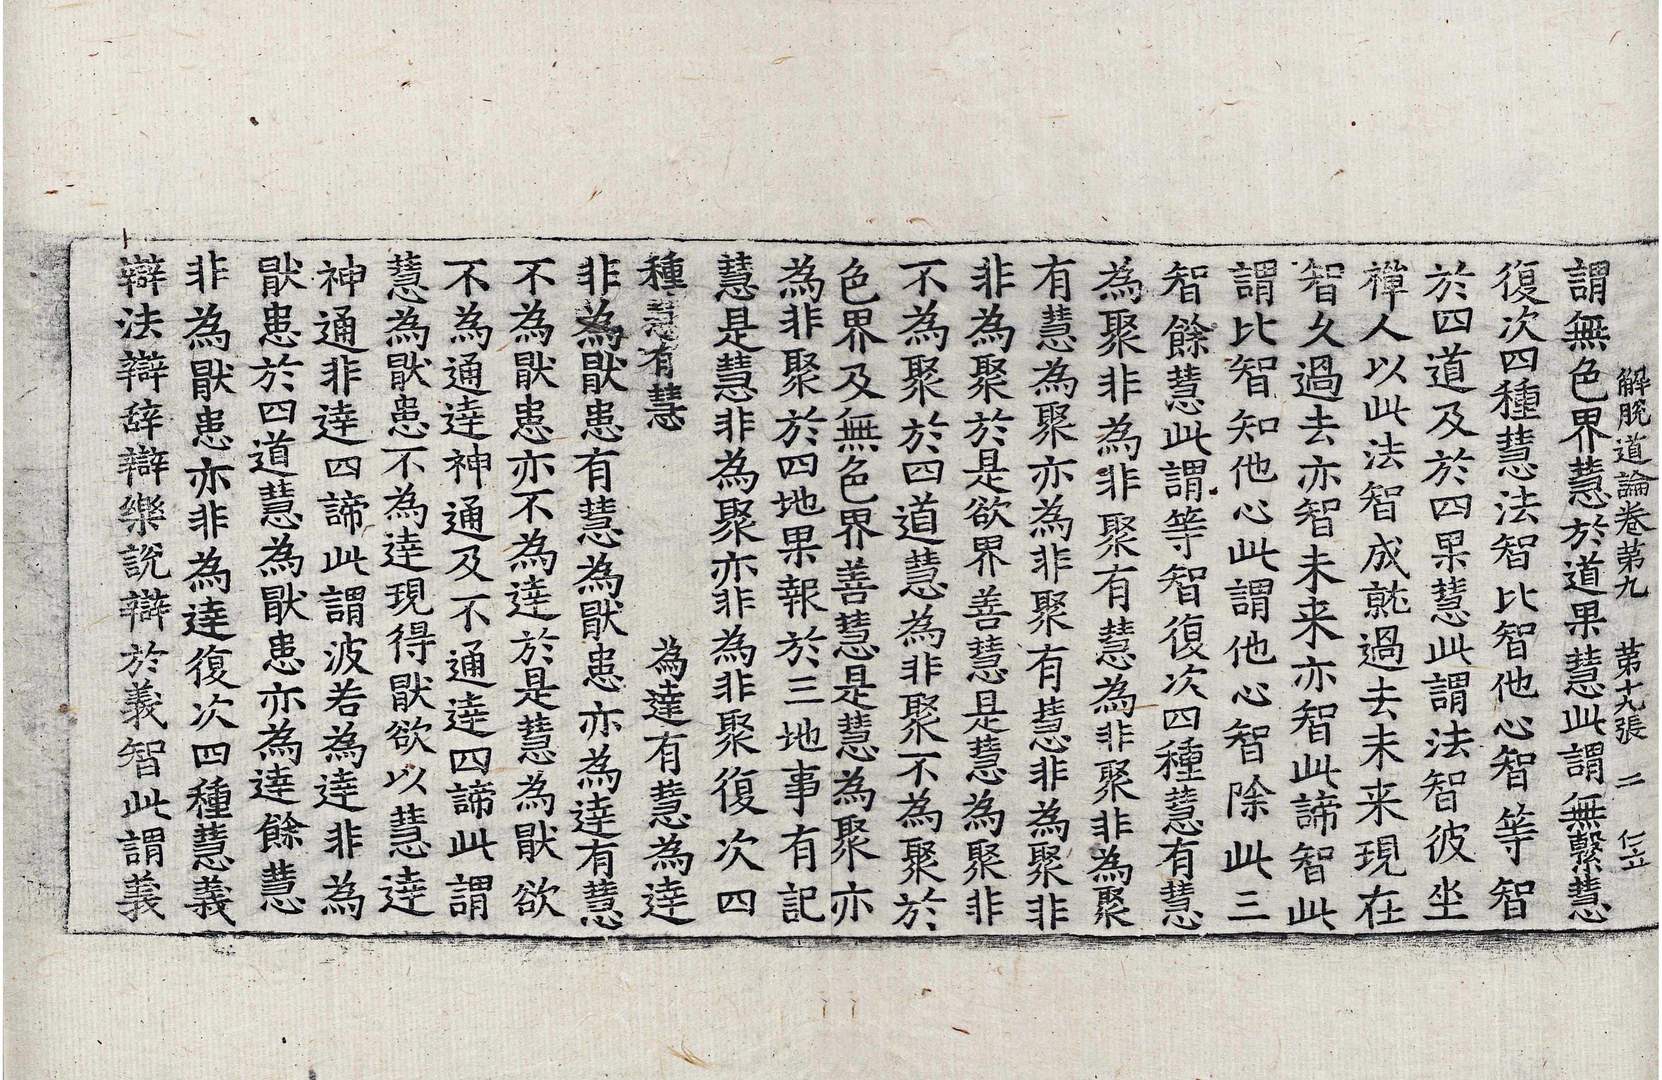 解脫道論卷第九 第十九張 二 仁立
謂無色界慧於道果慧此謂無繫慧
復次四種慧法智比智他心智等智
於四道及於四果慧此謂法智彼坐
禪人以此法智成就過去未来現在
智久過去亦智未来亦智此諦智此
謂比智知他心此謂他心智除此三
智餘慧此謂等智復次四種慧有慧
為聚非為非聚有慧為非聚非為聚
有慧為聚亦為非聚有慧非為聚非
非為聚於是欲界善慧是慧為聚非
不為聚於四道慧為非聚不為聚於
色界及無色界善慧是慧為聚亦
為非聚於四地果報於三地事有記
慧是慧非為聚亦非為非聚復次四
種慧有慧 為達有慧為逹
非為猒患有慧為猒患亦為逹有慧
不為猒患亦不為逹於是慧為猒欲
不為通逹神通及不通逹四諦此謂
慧為猒患不為逹現得猒欲以慧逹
神通非逹四諦此謂波若為逹非為
猒患於四道慧為猒患亦為逹餘慧
非為猒患亦非為逹復次四種慧義
辯法辯辞辯樂說辯於義智此謂義